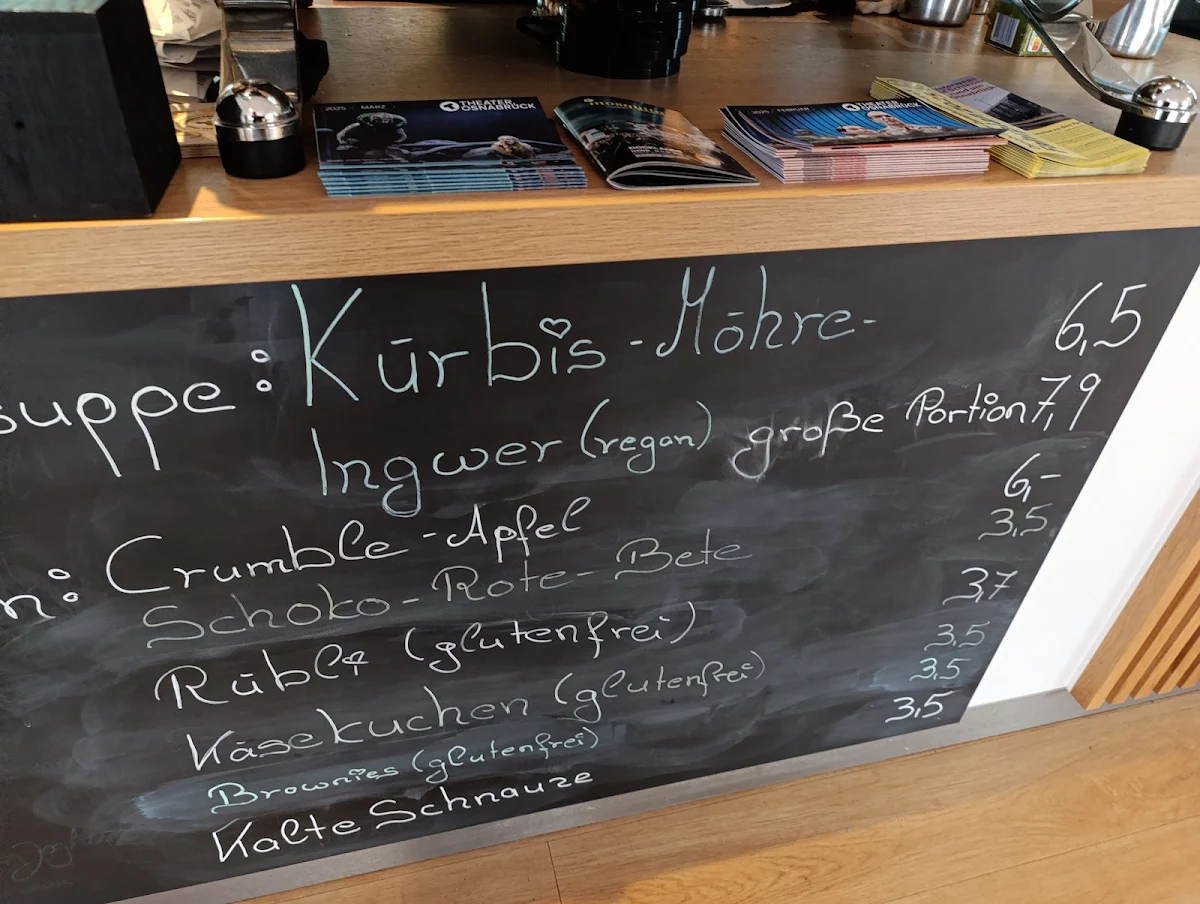 2025 MÄRZ THEATER OSNABRÜCK
2025 FEBRUAR THEATER OSNABRÜCK
suppe: Kürbis-Möhre- 6,5
Ingwer (vegan) große Portion 7,9
n: Crumble-Apfel 6,-
Schoko-Rote-Bete 3,5
Rübli (glutenfrei) 3,7
Käsekuchen (glutenfrei) 3,5
Brownies (glutenfrei) 3,5
Kalte Schnauze 3,5